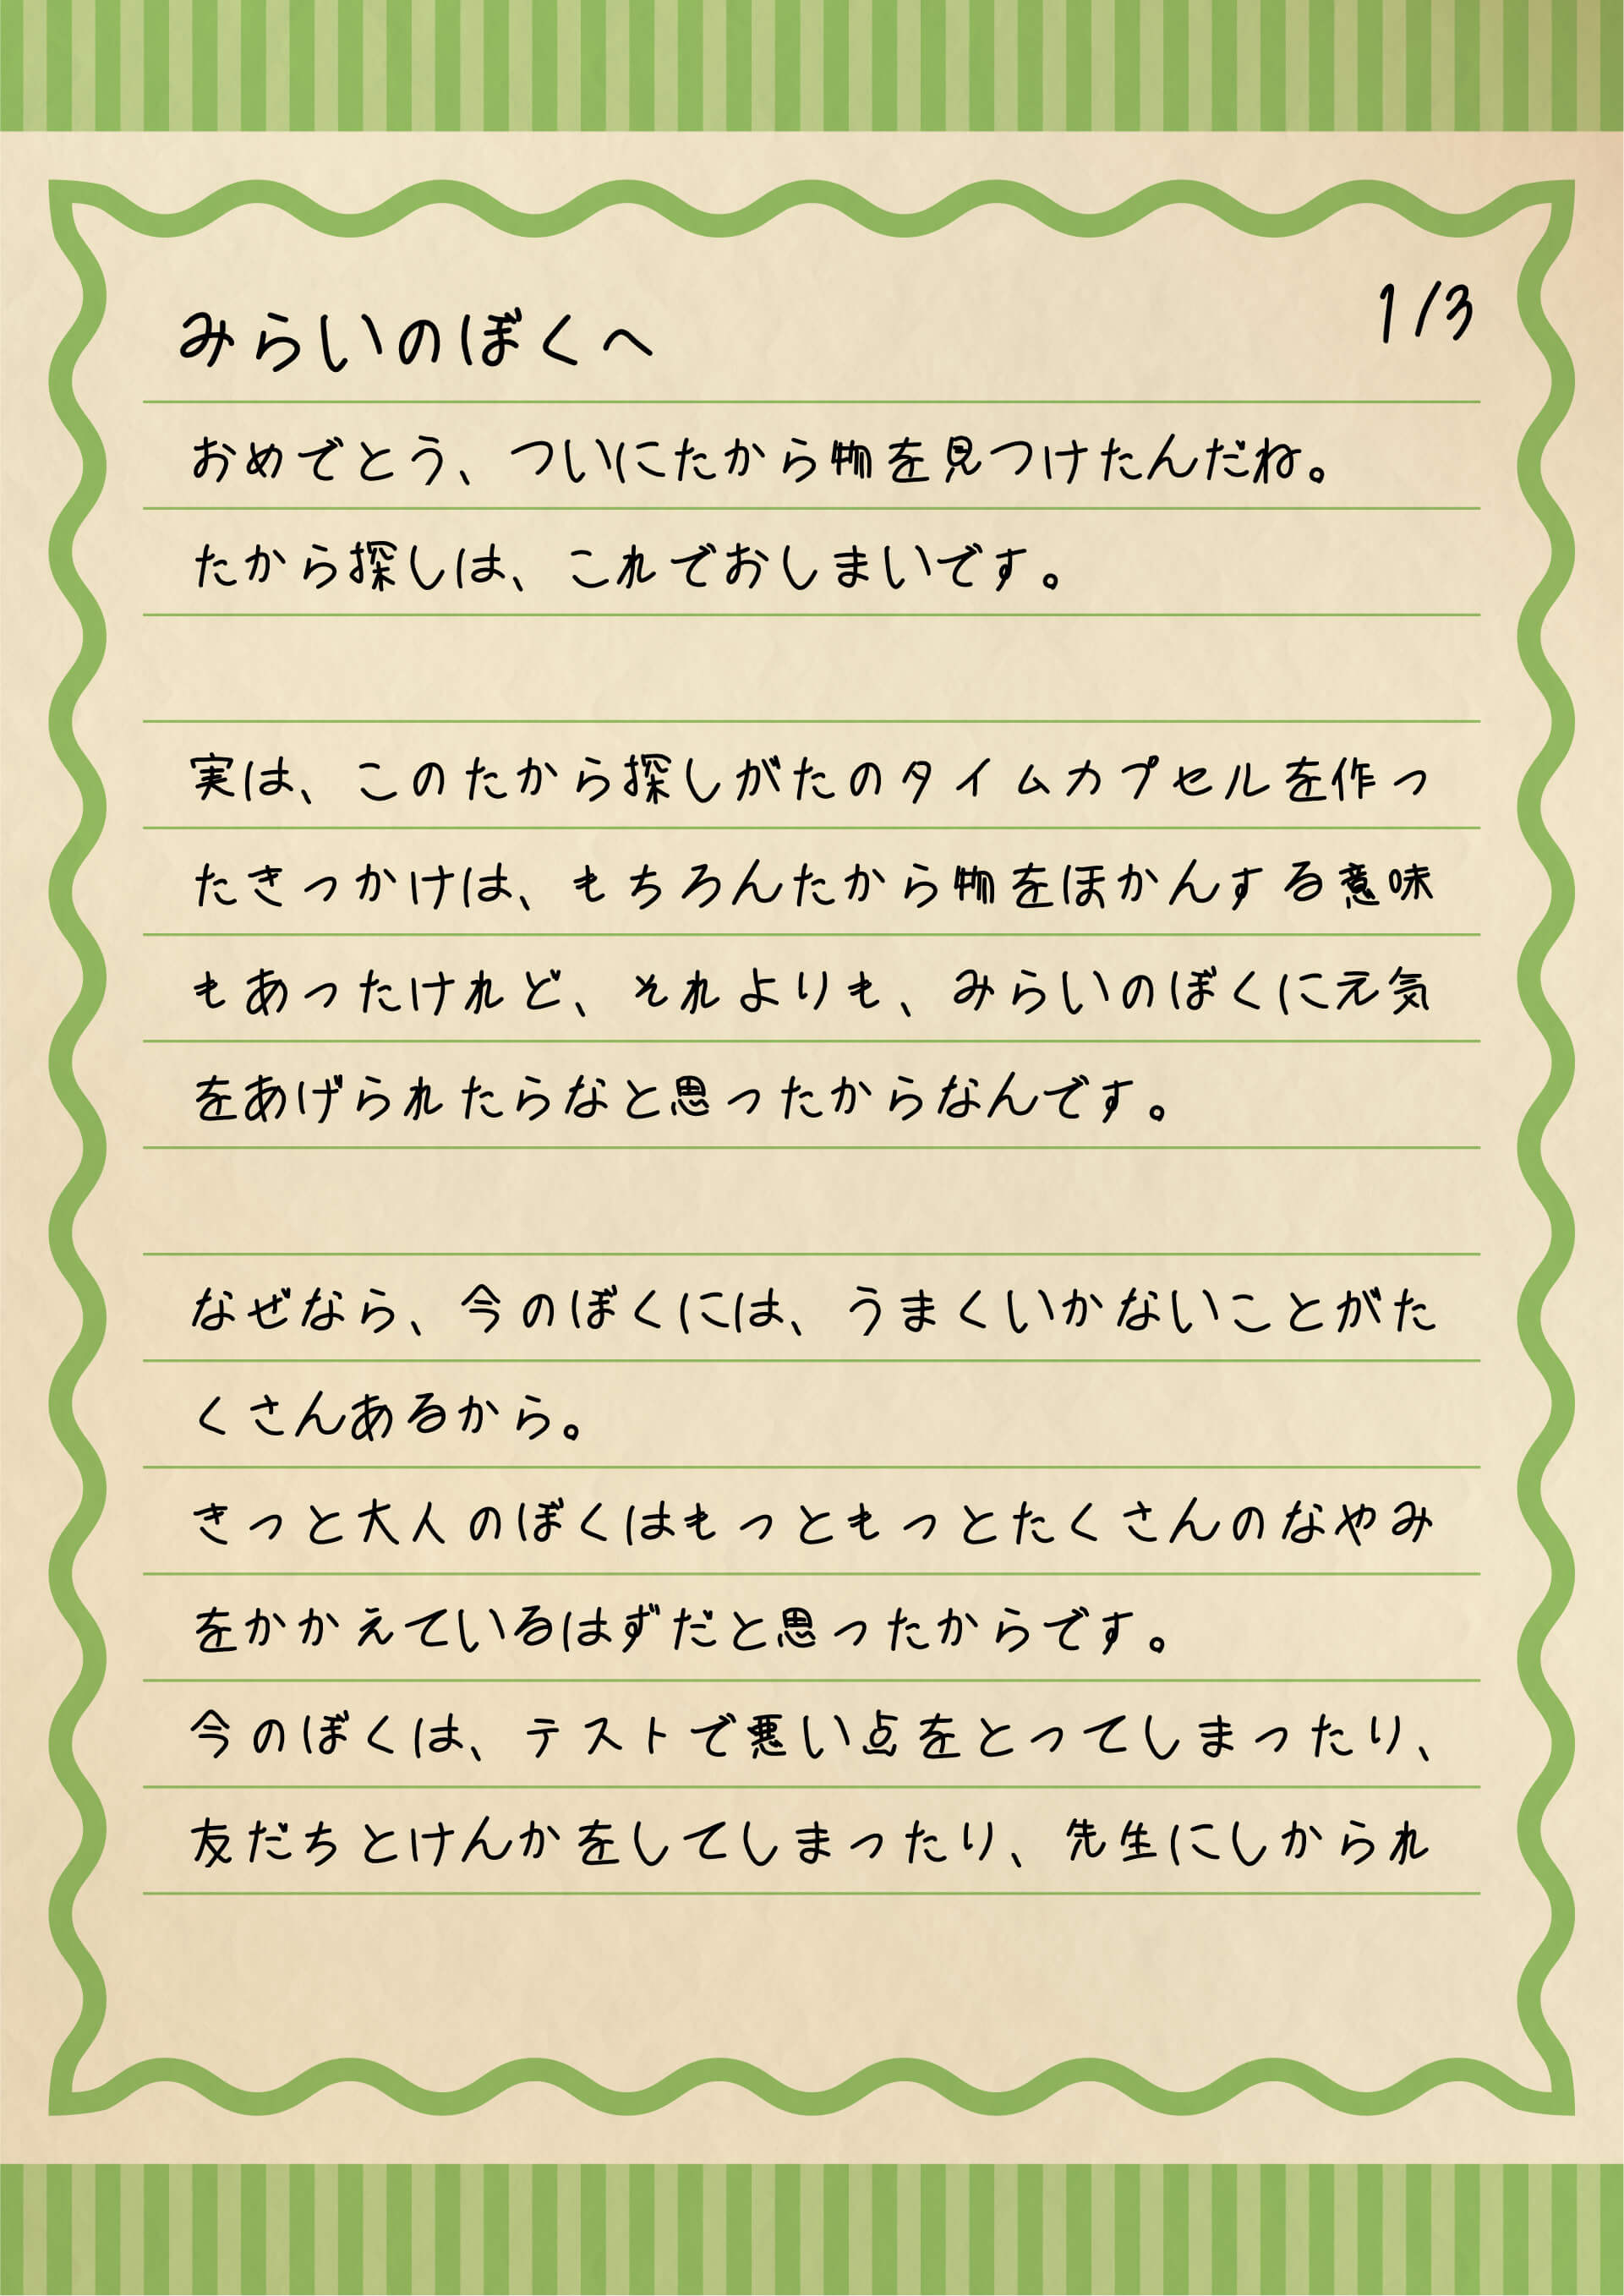 みらいのぼくへ
1/3
おめでとう、ついにたから物を見つけたんだね。
たから探しは、これでおしまいです。
実は、このたから探しがたのタイムカプセルを作っ
たきっかけは、もちろんたから物をほかんする意味
もあったけれど、それよりも、みらいのぼくに元気
をあげられたらなと思ったからなんです。
なぜなら、今のぼくには、うまくいかないことがた
くさんあるから。
きっと大人のぼくはもっともっとたくさんのなやみ
をかかえているはずだと思ったからです。
今のぼくは、テストで悪い点をとってしまったり、
友だちとけんかをしてしまったり、先生にしかられ